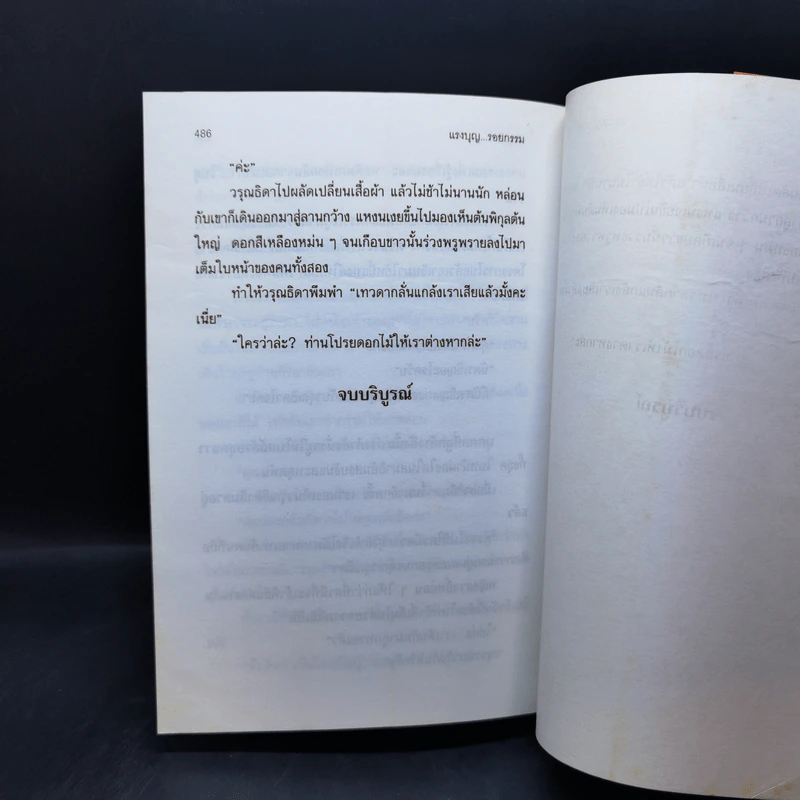 486
แรงบุญ...รอยกรรม
"ค่ะ"
วรุณธิดาไปผลัดเปลี่ยนเสื้อผ้า แล้วไม่ช้าไม่นานนัก หล่อน
กับเขาก็เดินออกมาสู่ลานกว้าง แหงนเงยขึ้นไปมองเห็นต้นพิกุลต้น
ใหญ่ ดอกสีเหลืองหม่น ๆ จนเกือบขาวนั้นร่วงพรูพรายลงไปมา
เต็มใบหน้าของคนทั้งสอง
ทำให้วรุณธิดาพึมพำ "เทวดากลั่นแกล้งเราเสียแล้วมั้งคะ
เนี่ย"
"ใครว่าล่ะ? ท่านโปรยดอกไม้ให้เราต่างหากล่ะ"
จบบริบูรณ์